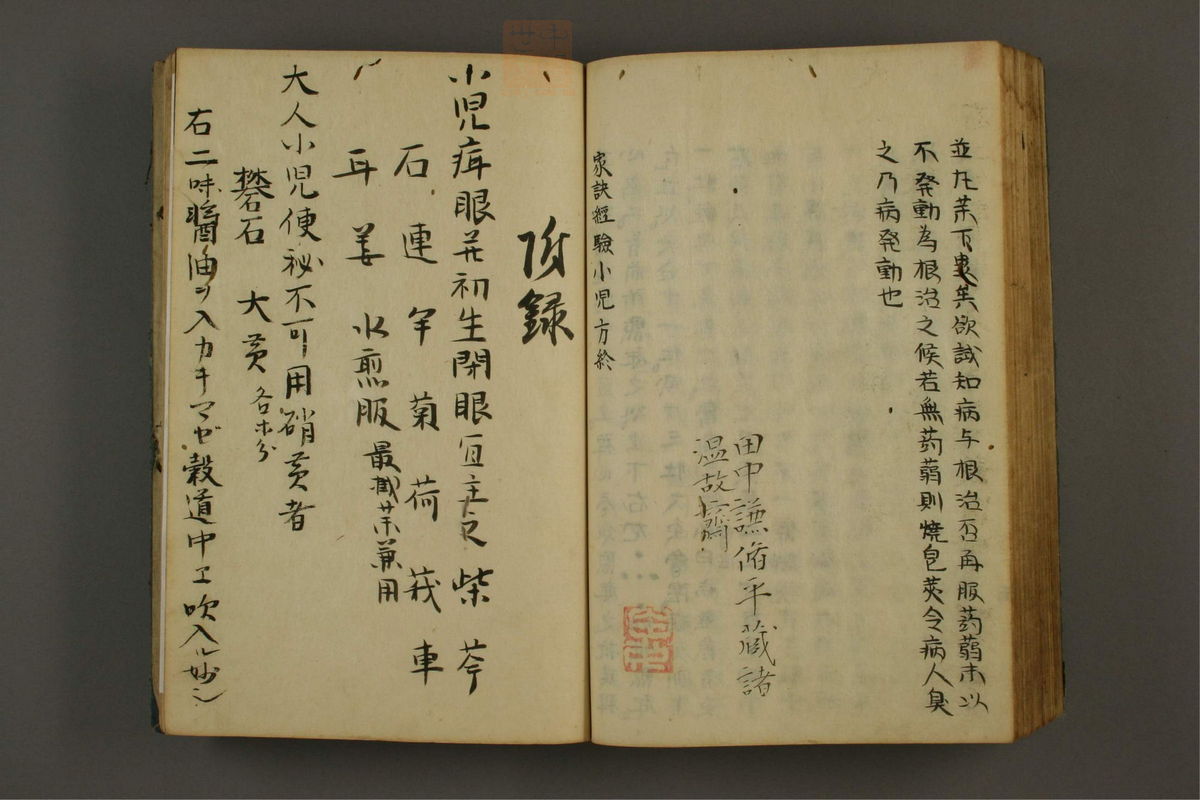 並左芙下裏芙欲試知病与根治否再服蒟蒻末以
不発動為根治之候若無蒟蒻則焼皂莢令病人臭
之乃病発動也
田中謙脩平蔵諸
温故齋
家訣經驗小児方終
附録
小児疳眼并初生閉眼宜主之柴芩
石連芍菊荷莪車
耳羌水煎服最截茶兼用
大人小児便秘不可用硝黄者
礬石大黄各等分
右二味醤油ヲ入カキマゼ穀道中エ吹入ル妙〻